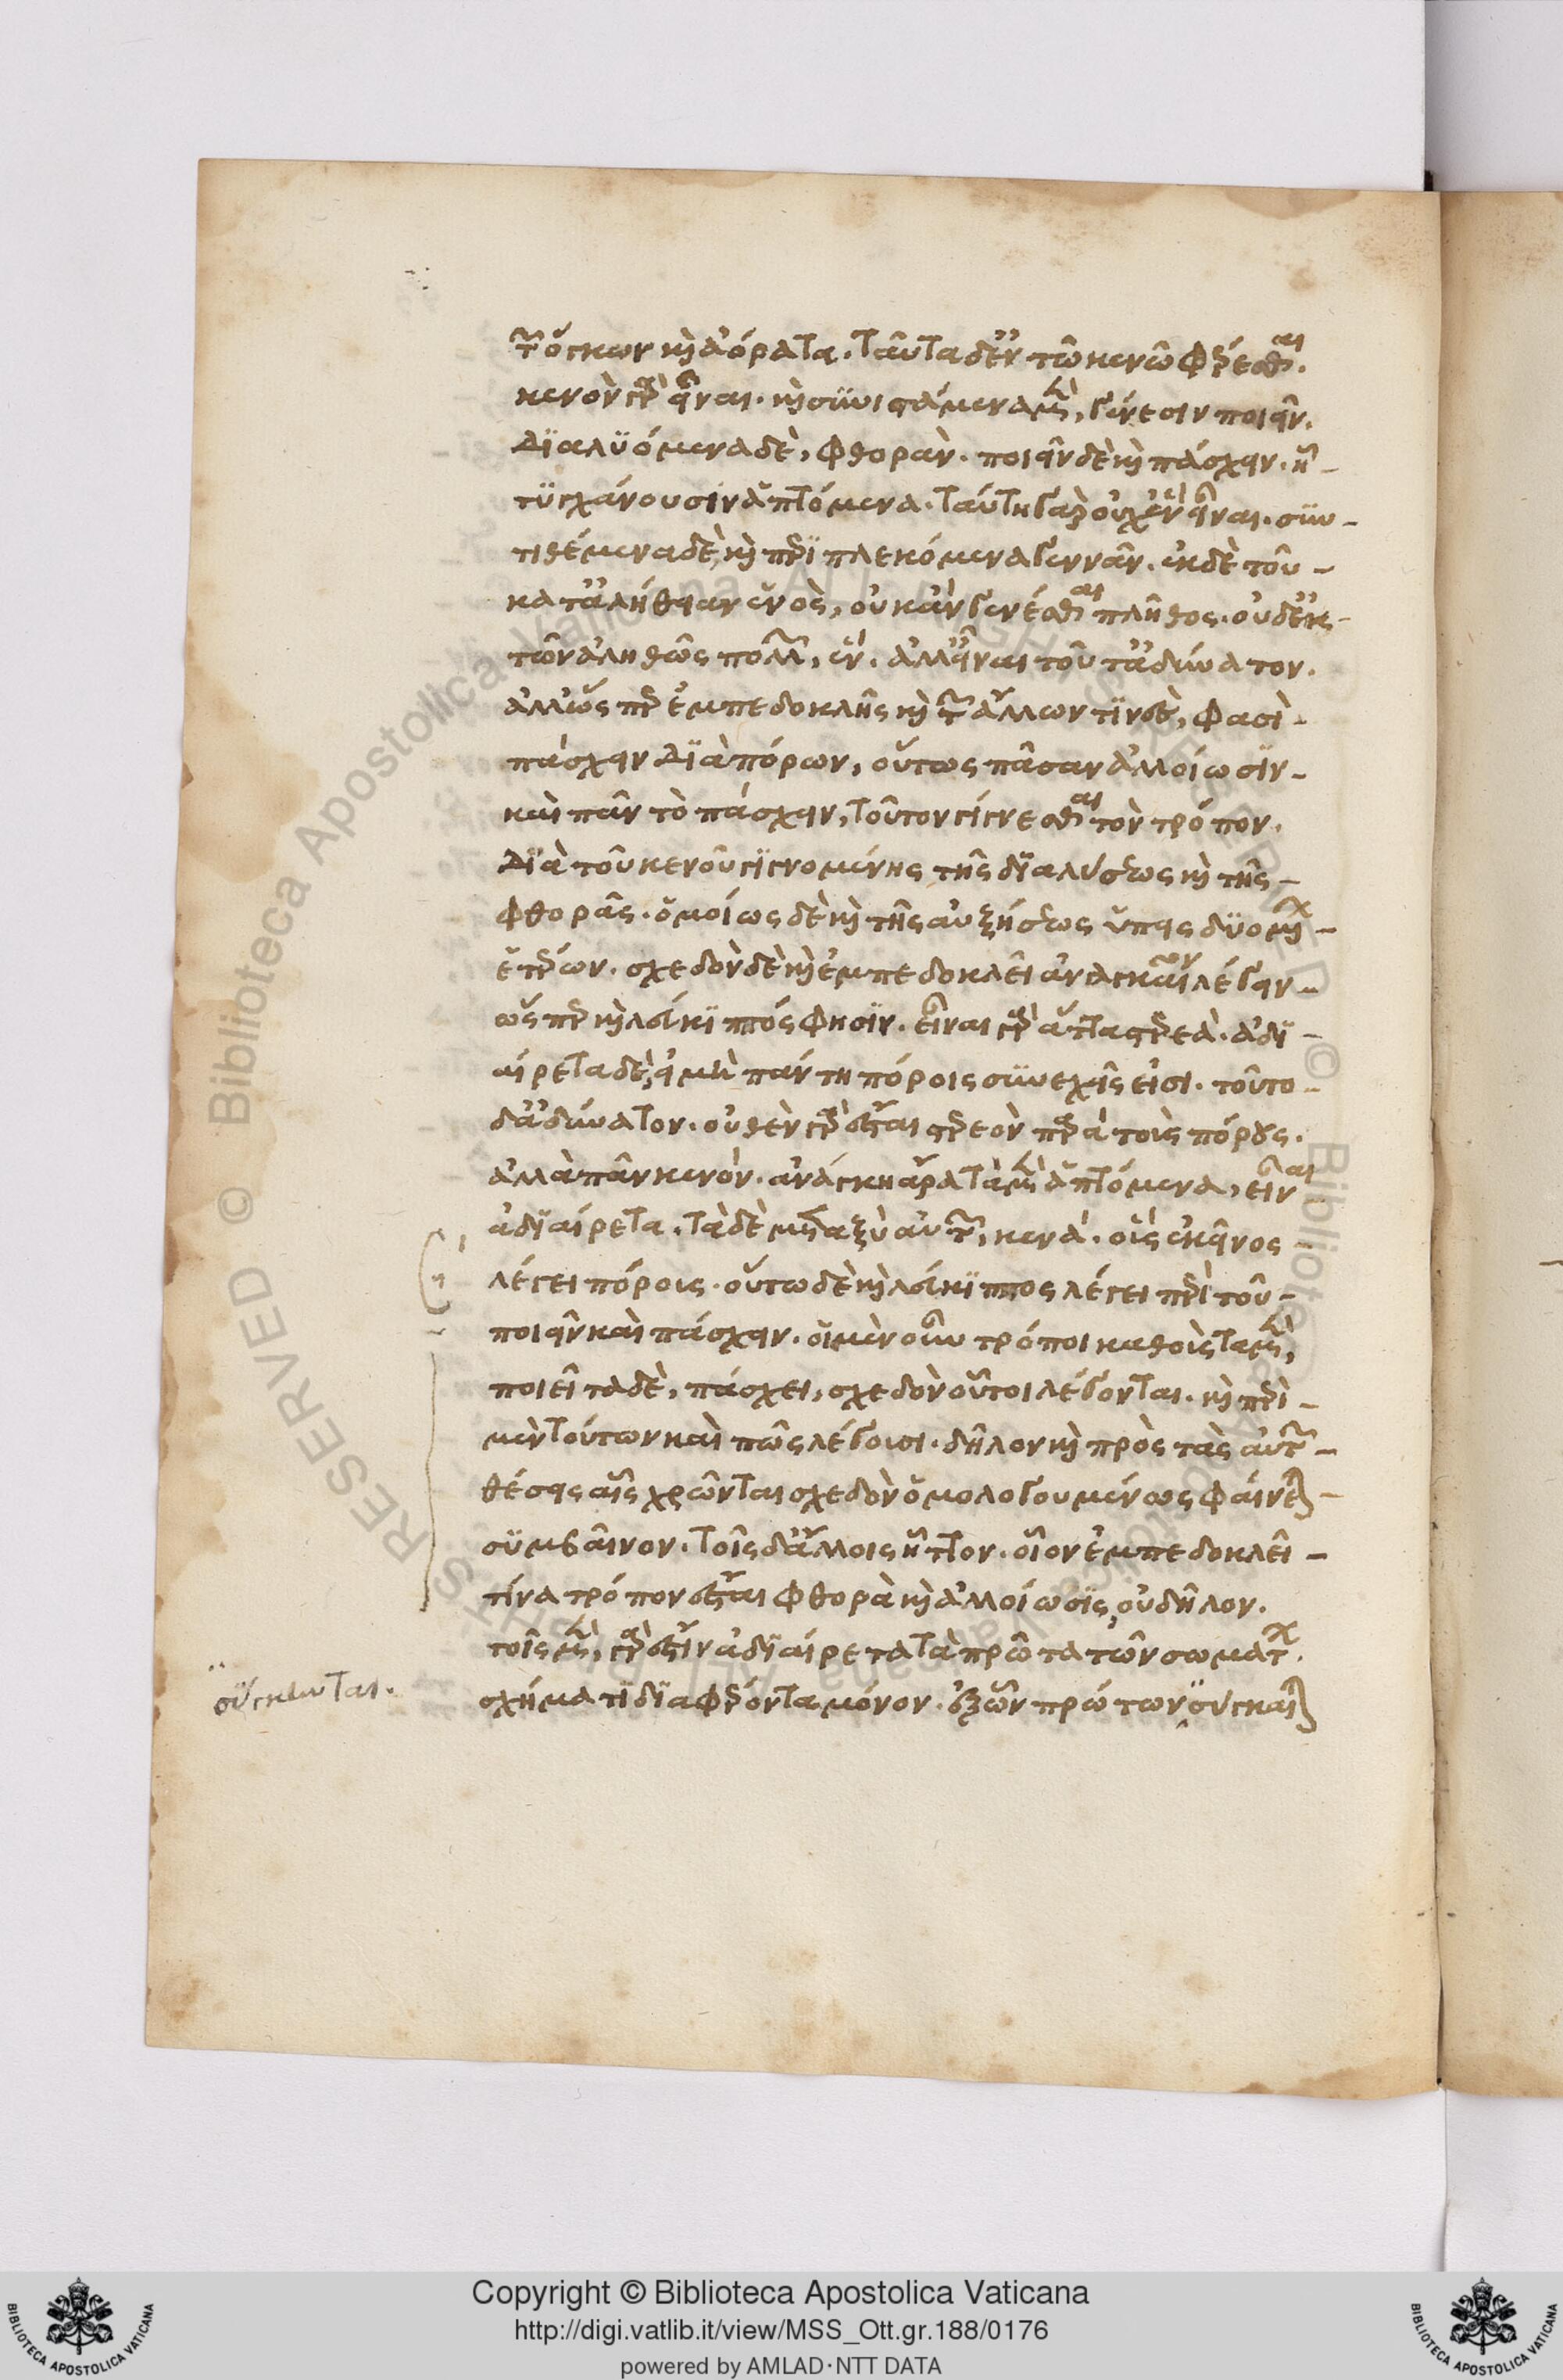 τῶν ὄγκων καὶ ἀόρατα. ταῦτα δ' ἐν τῶ κενῶ φέρεσθαι.
κενὸν γὰρ εἶναι. καὶ συνιστάμενα μὲν, γένεσιν ποιεῖν.
διαλυόμενα δὲ, φθοράν. ποιεῖν δὲ καὶ πάσχειν. ἧ
τυγχάνουσιν ἁπτόμενα. ταύτη γὰρ οὐχ ἓν εἶναι. συν-
τιθέμενα δὲ, καὶ περιπλεκόμενα γεννᾶν. ἐκ δὲ τοῦ
κατ' ἀλήθειαν ἑνὸς, οὐκ ἂν γενέσθαι πλῆθος. οὐδ' ἐκ
τῶν ἀληθῶς πολλῶν, ἕν. ἀλλ' εἶναι τοῦτ' ἀδύνατον.
ἀλλ' ὥσπερ ἐμπεδοκλῆς καὶ τῶν ἄλλων τινὲς, φασὶ
πάσχειν διὰ πόρων, οὕτως πᾶσαν ἀλλοίωσιν
καὶ πᾶν τὸ πάσχειν, τοῦτον γίγνεσθαι τὸν τρόπον.
διὰ τοῦ κενοῦ γιγνομένης τῆς διαλύσεως καὶ τῆς
φθορᾶς. ὁμοίως δὲ καὶ τῆς αὐξήσεως ὑπεισδυομένων
στερεῶν. σχεδὸν δὲ καὶ ἐμπεδοκλεῖ ἀναγκαῖον λέγειν
ὥσπερ καὶ λεύκιππός φησιν. εἶναι γὰρ ἄττα στερεά. ἀδι-
αίρετα δὲ, εἰ μὴ πάντη πόροι συνεχεῖς εἰσι. τοῦτο
δ' ἀδύνατον. οὐθὲν γὰρ ἔσται στερεὸν παρὰ τοὺς πόρους.
ἀλλὰ πᾶν κενόν. ἀνάγκη ἄρα τὰ μὲν ἁπτόμενα, εἶναι
ἀδιαίρετα. τὰ δὲ μεταξὺ αὐτῶν, κενά. οὓς ἐκεῖνος
λέγει πόρους. οὕτω δὲ καὶ λεύκιππος λέγει περὶ τοῦ
ποιεῖν καὶ πάσχειν. οἱ μὲν οὖν τρόποι καθ' οὓς τὰ μὲν,
ποιεῖ τὰ δὲ, πάσχει, σχεδὸν οὗτοι λέγονται. καὶ περὶ
μὲν τούτων καὶ πῶς λέγουσι. δῆλον καὶ πρὸς τὰς αὐτῶν
θέσεις αἷς χρῶνται σχεδὸν ὁμολογουμένως φαίνεται
συμβαῖνον. τοῖς δ' ἄλλοις ἧττον. οἷον ἐμπεδοκλεῖ
τίνα τρόπον ἔσται φθορὰ καὶ ἀλλοίωσις, οὐ δῆλον.
τοῖς μὲν, γάρ ἐστιν ἀδιαίρετα τὰ πρῶτα τῶν σωμάτων.
σχήματι διαφέροντα μόνον. ἐξ ὧν πρώτων συγκεῖται
σύγκεινται.